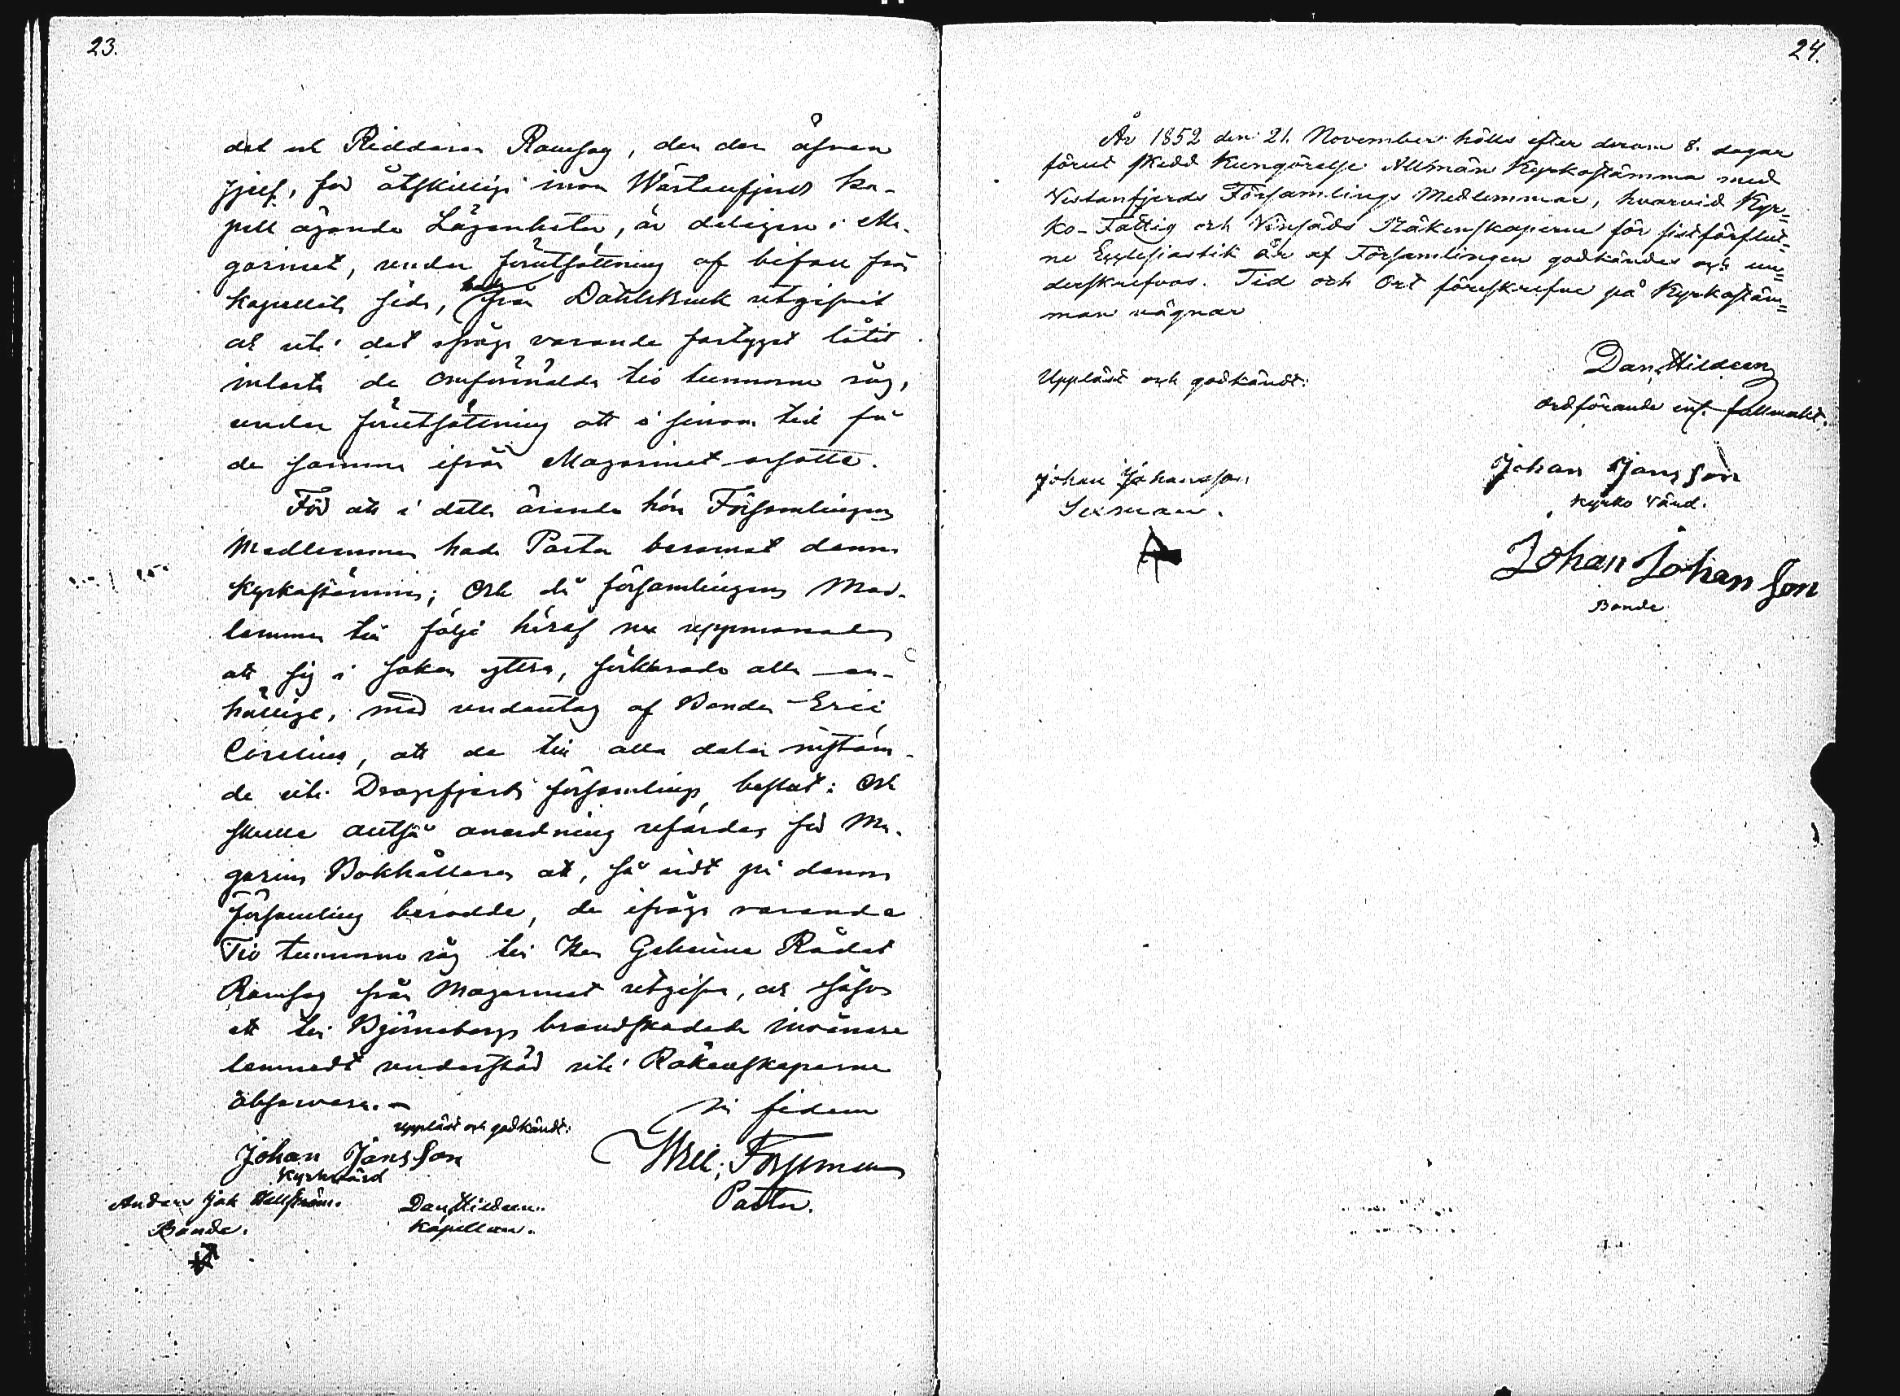 23.
det och Riddaren Ramsay, den der äfven
sjelf, för åtskillige inom Wästanfjerds Ka-
pell ägande Lägenheter, är delegare i Ma-
gasinet, under förutsättning af bifall från
Kapellets sida, hade från Dahlsbruk utgifvit
och uti det ifråga varande fartyget låtit
inlasta de omförmälda tio tunnorne råg,
under förutsättning att i sinom tid få
de samma ifrån Magasinet ersatte.
För att i detta ärende höra Församlingens
Medlemmar hade Pastor beramat denna
Kyrkostämma; Och då församlingens Med-
lemmar till följe häraf nu uppmanades
att sig i saken yttra, förklarade alla en-
hällige, med undantag af Bonden Eric
Corelius, att de till alla delar instäm-
de uti Dragsfjerds församlings beslut; Och
skulle alltså anordning utfärdas för Ma-
gasins Bokhållaren att, så vidt på denna
församling berodde, de ifråga varande
Tio tunnorne råg till Herr Geheime Rådet
Ramsay från Magasinet utgifva, och såsom
ett till Björneborgs brandskadade invånare
lemnadt understöd uti Räkenskaperne
observera. —
In fidem
Uppläst och godkändt:
Johan Jansson
Kyrkovärd
Wilh: Forsman
Pastor.
Anders Joh Hellström.
Bonde.
Dan, Hildeen.
Kapellan.
24.
År 1852 den 21. November hölls efter derom 8. dagar
förut skedd Kungörelse Allmän Kyrkostämma med
Vestanfjerds Församlings Medlemmar, hvarvid Kyr=
ko- Fattig och Vinsäds Räkenskaperne för sistförflut=
ne Ecclesiastik år af Församlingen godkändes och un=
derskrefvos. Tid och Ort föreskrefne på Kyrkostäm=
man vägnar
Dan, Hildeen
Ordförande enl. fullmakt.
Uppläst och godkändt:
Johan Jansson
Kyrko Värd.
Johan Johansson
Sexman.
Johan Johansson
Bonde